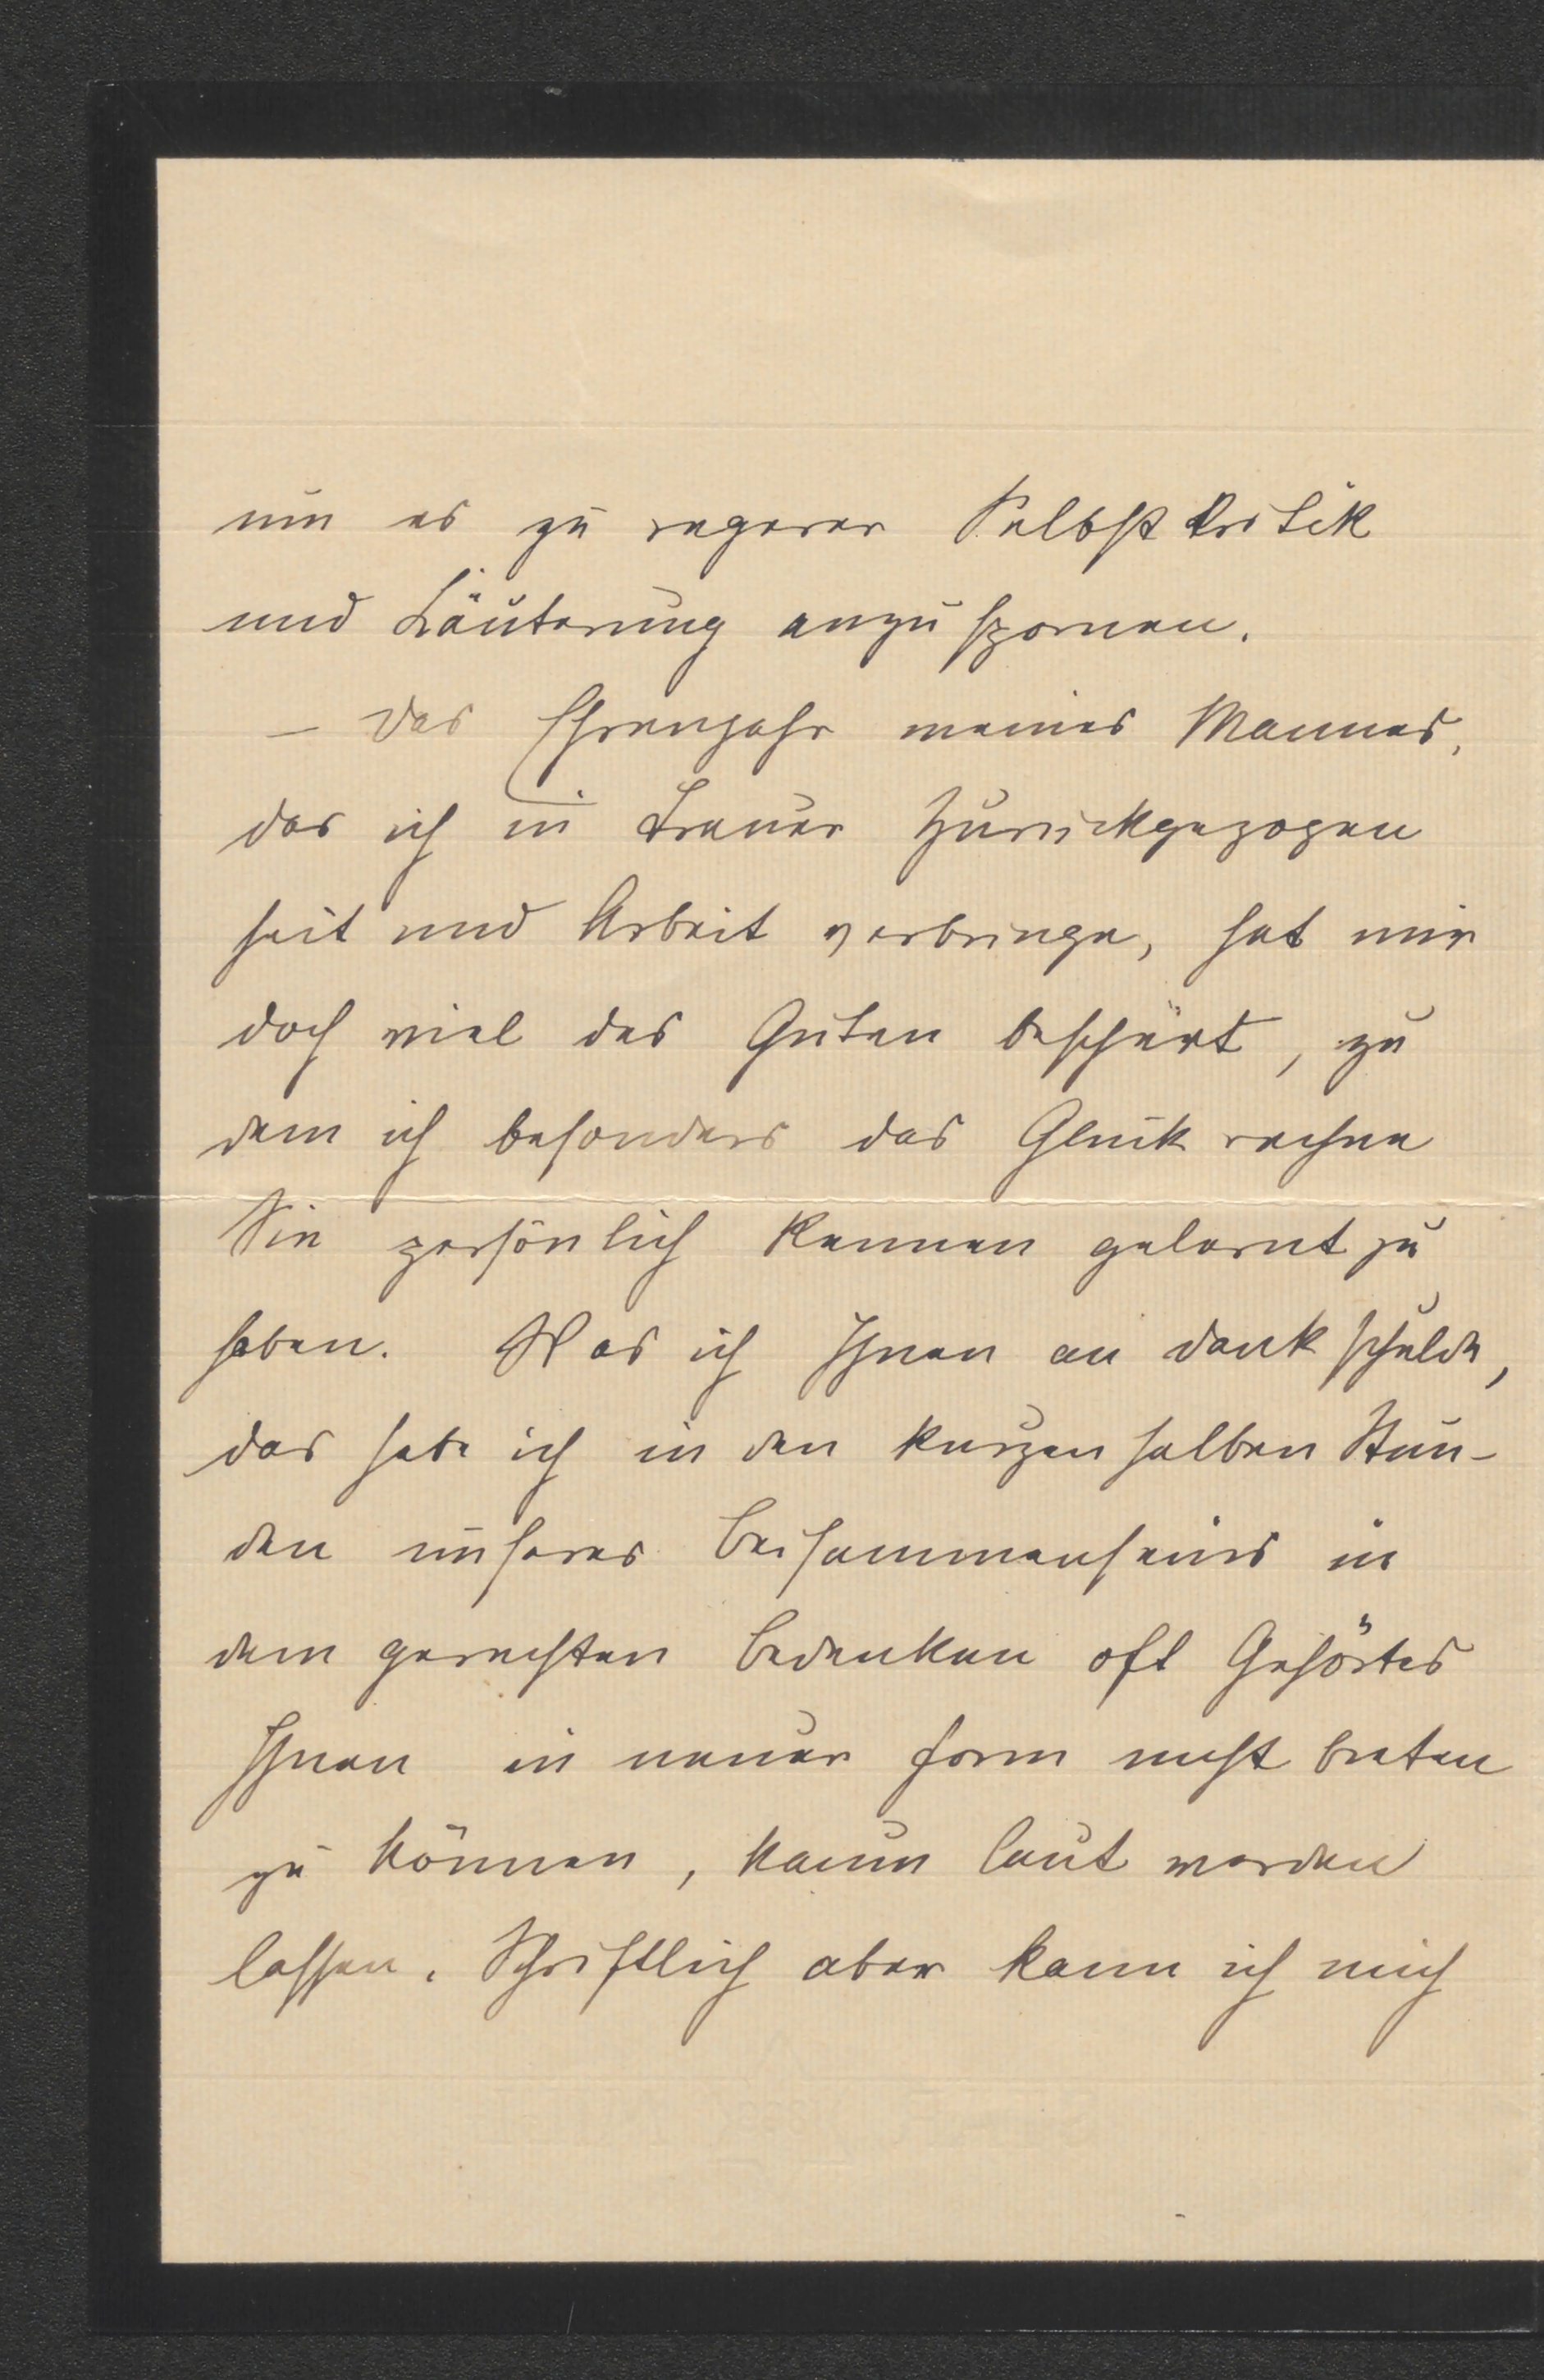 um es zu regerer Selbstkritik
und Läuterung anzuspornen.
– Das Ehrenjahr meines Mannes,
das ich in Trauer Zurückgezogen
heit und Arbeit verbringe, hat mir
doch viel des Guten beschert, zu
dem ich besonders das Glück rechne
Sie persönlich kennen gelernt zu
haben. Was ich Ihnen an Dank schulde,
das habe ich in den kurzen halben Stun-
den unseres Beisammenseins in
dem gerechten Bedenken oft Gehörtes
Ihnen in neuer Form nicht bieten
zu können, kaum laut werden
lassen. Schriftlich aber kann ich mich